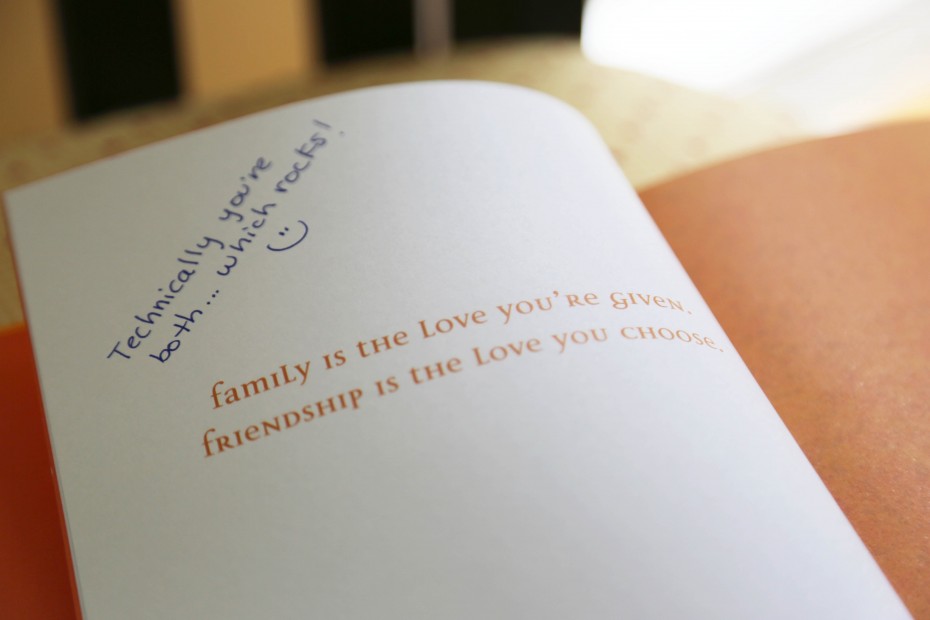 Technically you're
both... which rocks!
family is the love you're given.
friendship is the love you choose.